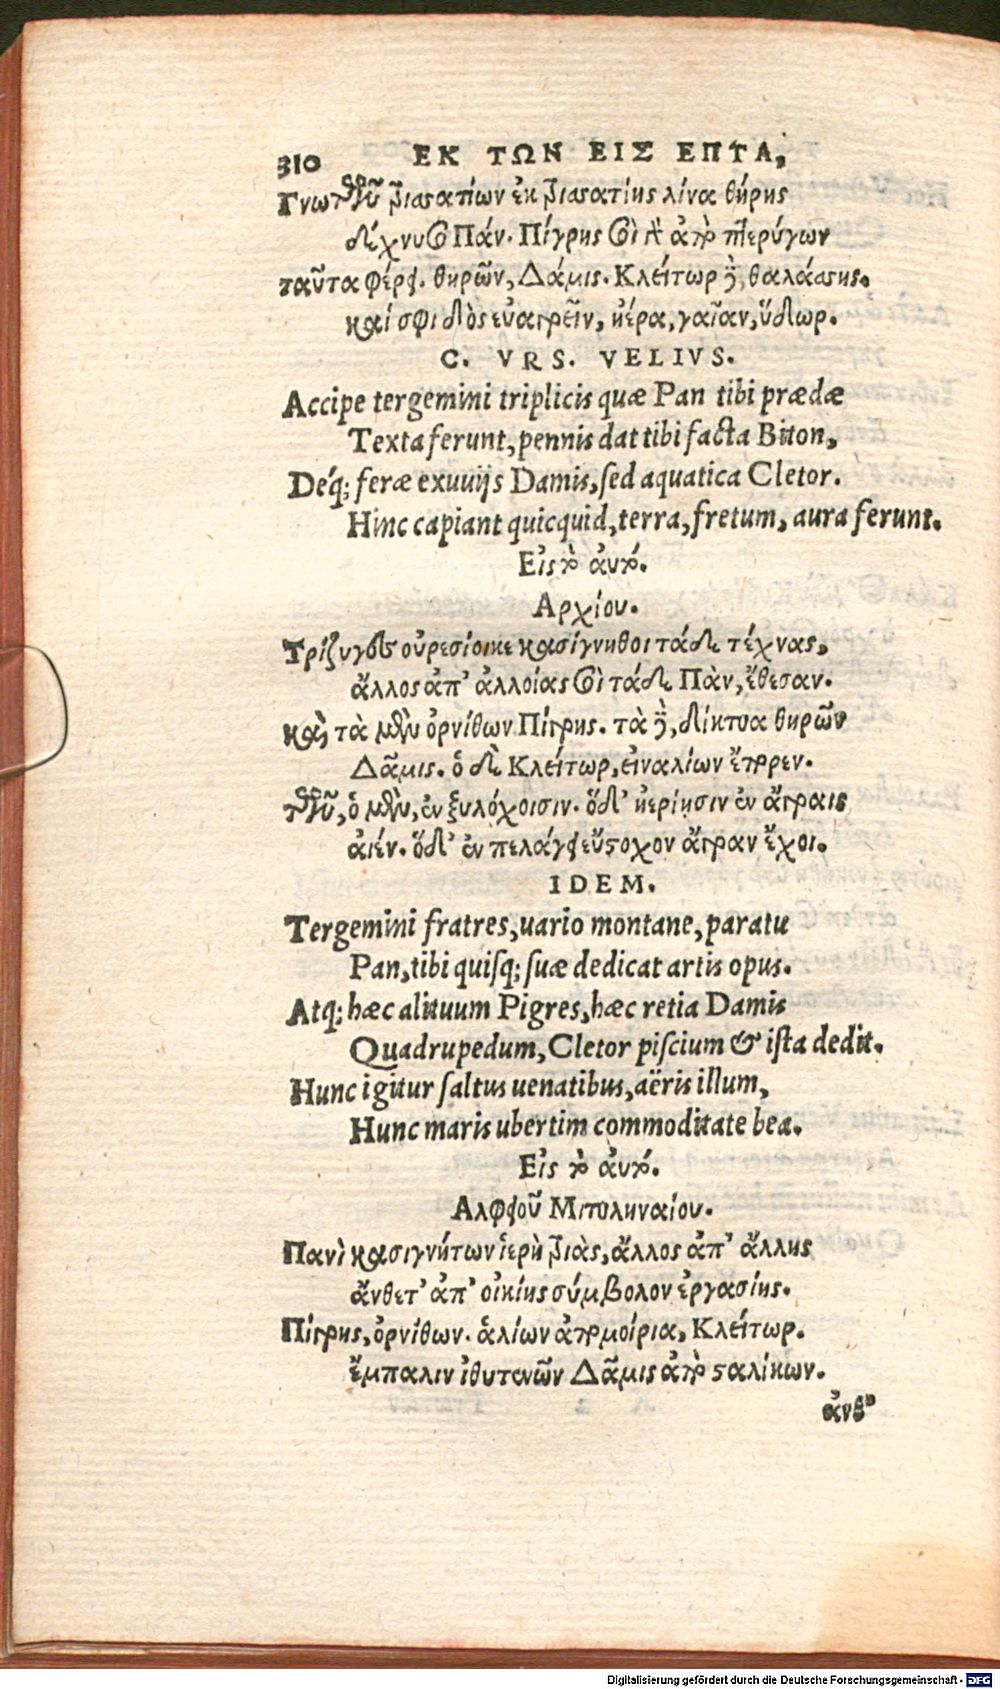 310 ΕΚ ΤΩΝ ΕΙΣ ΕΠΤΑ,
Γνωτῶν τριασατίων ἐκ τριασατίης λίνα θήρης
δέχνυσο Πάν. Πίγρης σοὶ ἀπὸ πτερύγων
ταῦτα φέρει. θηρῶν, Δάμις. Κλείτωρ δὲ, θαλάσσης.
καί σφι δὸς εὐαγρεῖν, ἠέρα, γαῖαν, ὕδωρ.
C. VRS. VELIVS.
Accipe tergemini triplicis quæ Pan tibi prædæ
Texta ferunt, pennis dat tibi facta Biton,
Déq; feræ exuuijs Damis, sed aquatica Cletor.
Hinc capiant quicquid, terra, fretum, aura ferunt.
Εἰς τὸ αὐτό.
Αρχίου.
Τρίζυγες οὐρεσίοικε κασίγνηθοι τάδε τέχνας,
ἄλλος ἀπ’ ἀλλοίας σοὶ τάδε Πὰν, ἔθεσαν.
καὶ τὰ μὲν ὀρνίθων Πίγρης. τὰ δὲ, δίκτυα θηρῶν
Δᾶμις. ὁ δὲ Κλείτωρ, εἰναλίων ἔπορεν.
τῶν, ὁ μὲν, ἐν ξυλόχοισιν. ὅδ’ ἠερίῃσιν ἐν ἄγραις
αἰέν. ὅδ’ ἐν πελάγει εὔστοχον ἄγραν ἔχοι.
IDEM.
Tergemini fratres, uario montane, paratu
Pan, tibi quisq; suæ dedicat artis opus.
Atq; hæc alituum Pigres, hæc retia Damis
Quadrupedum, Cletor piscium & ista dedit.
Hunc igitur saltus uenatibus, aëris illum,
Hunc maris ubertim commoditate bea.
Εἰς τὸ αὐτό.
Αλφειοῦ Μιτυληναίου.
Πανὶ κασιγνήτων ἱερὴ τριὰς, ἄλλος ἀπ’ ἄλλης
ἄνθετ’ ἀπ’ οἰκίης σύμβολον ἐργασίης.
Πίγρης, ὀρνίθων. ἁλίων ἀπομοίρια, Κλείτωρ.
ἔμπαλιν ἰθυτενῶν Δᾶμις ἀπὸ σταλίκων.
ἀνθ’
Digitalisierung gefördert durch die Deutsche Forschungsgemeinschaft - DFG